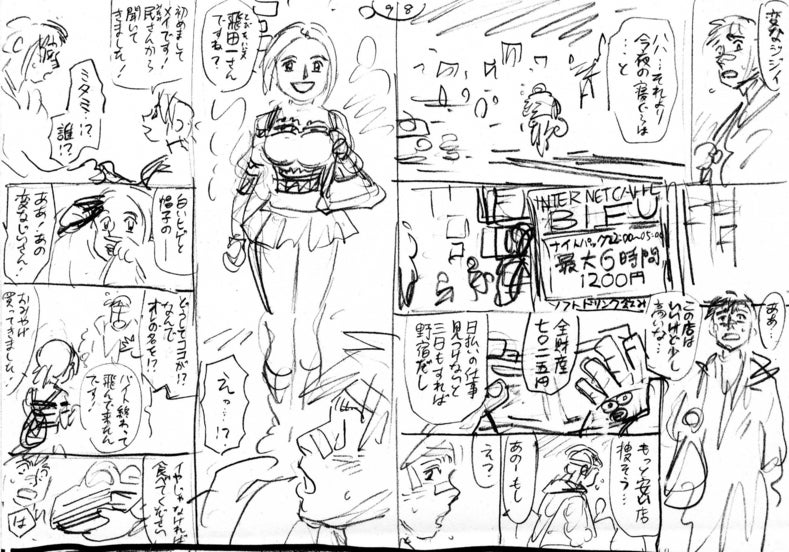 変なジジイ
ハハ…それより
今夜の寝ぐらは
…と
98
INTERNET CAFE
BLEU
ナイトパック22:00〜05:00
最大6時間
1200円
ソフトドリンク
ああ…
この店は
いいけど少し
高いな…
全財産
七〇二五円
日払いの仕事
見つけないと
三日もすれば
野宿だし
もっと安い店
探そう…
あのーもし
えっ?
飛田一さん
ですね?
えっ…!?
初めまして
メイです!
民さんから
聞いて
きました!
ミタミ…!?
誰!?
白いヒゲと
帽子の…
ああ!あの
変なじいさん!
どうしてココが!?
なんで
オレの名を!?
バイト終わって
飛んで来たん
です!
おみやげ
買ってきました!
イヤじゃなければ
食べてください
は